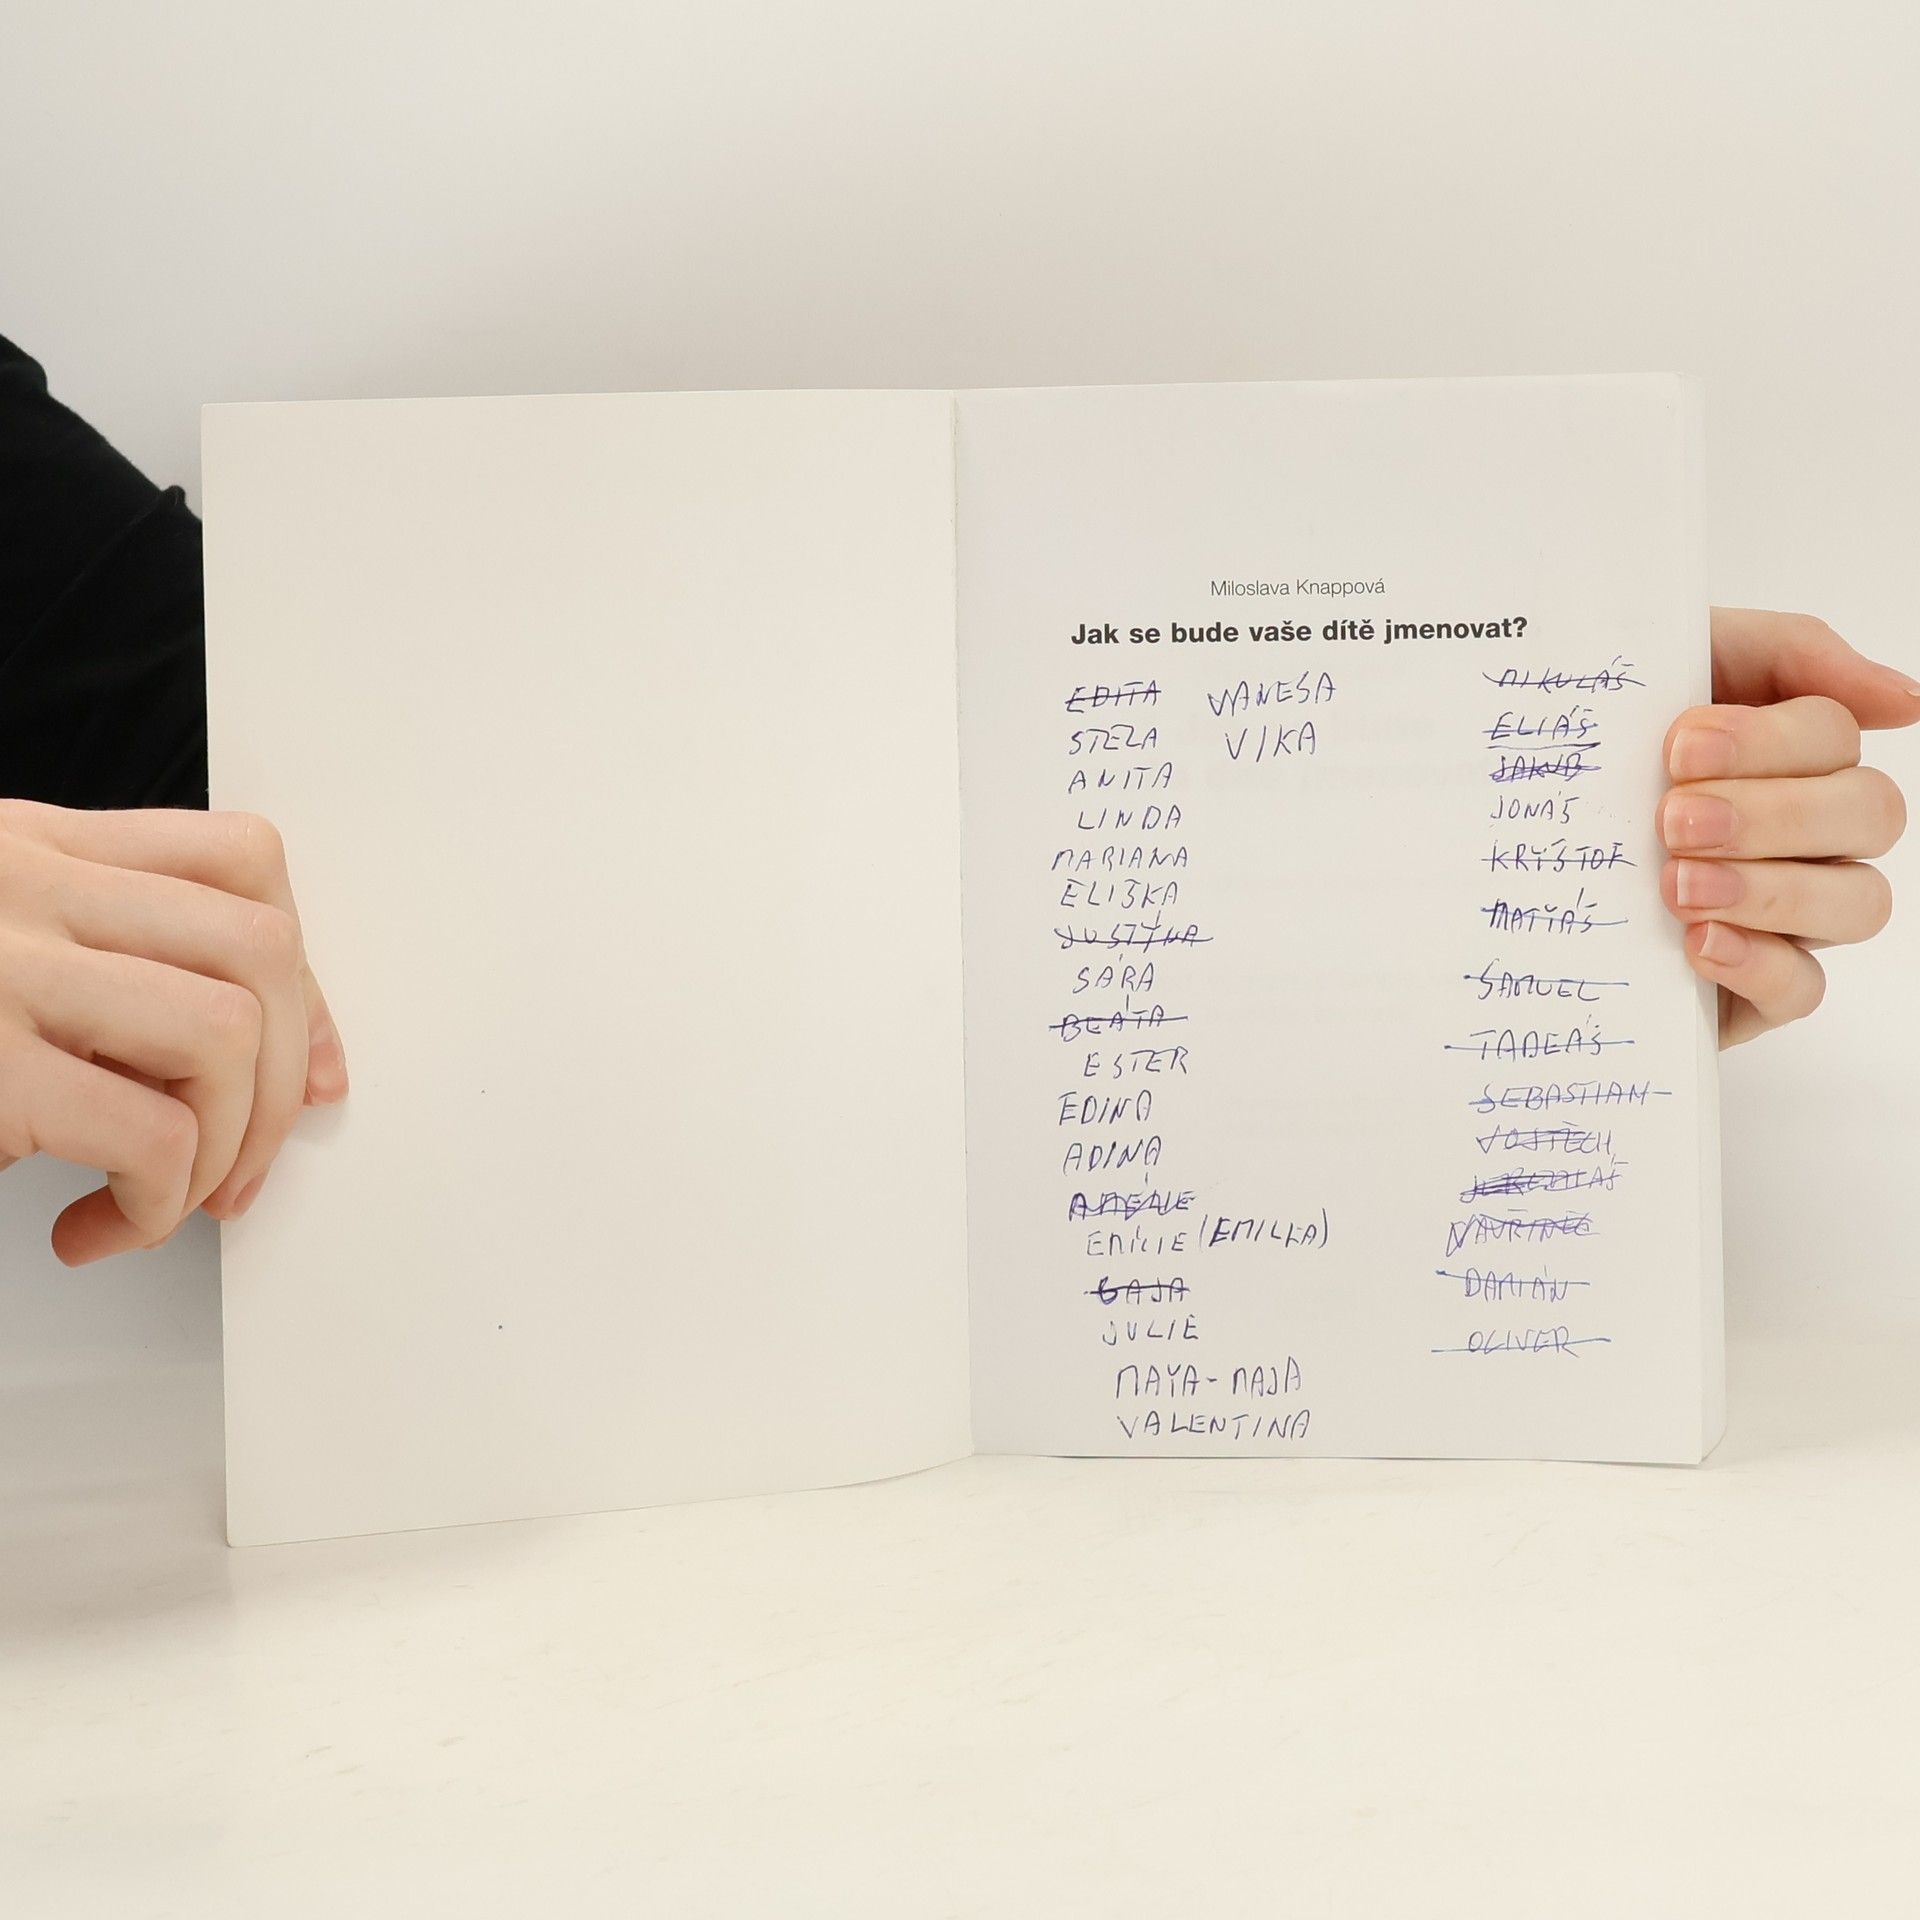 Miloslava Knappová
Jak se bude vaše dítě jmenovat?
EDITA
STELA
ANITA
LINDA
MARIANA
ELIŠKA
JUSTÝNA
SÁRA
BEÁTA
ESTER
EDINA
ADINA
AMÉLIE
EMÍLIE (EMILKA)
GAJA
JULIE
MAYA - MAJA
VALENTINA
VANESA
VIKA
MIKULÁŠ
ELIÁŠ
JAKUB
JONÁŠ
KRYŠTOF
MATYÁŠ
SAMUEL
TADEÁŠ
SEBASTIAN
VOJTĚCH
JEREMIÁŠ
VAVŘINEC
DAMIÁN
OLIVER